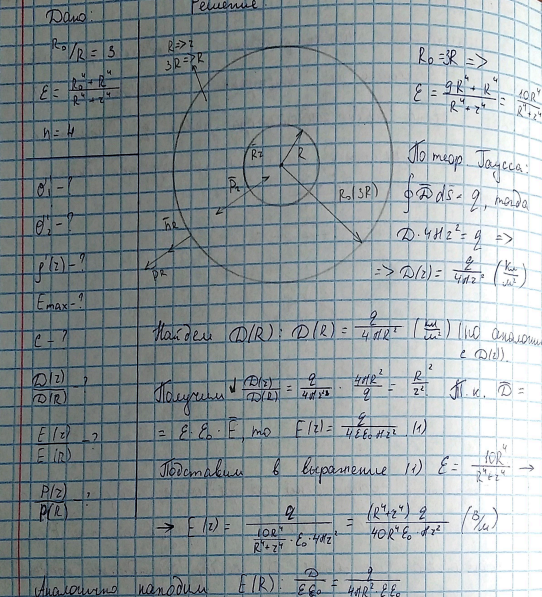 Решение.
Дано:
R₀/R = 3
ε = (R₀ⁿ + Rⁿ)/(Rⁿ + rⁿ)
n = 4
σ'₁ - ?
σ'₂ - ?
ρ'(r) - ?
Emax - ?
c - ?
D(r)/D(R) - ?
E(r)/E(R) - ?
P(r)/P(R) - ?
R => r
3R => R
R
R₀(3R)
R₀ = 3R =>
ε = (9R⁴ + R⁴)/(R⁴ + r⁴) = 10R⁴/(R⁴+r⁴)
По теор. Гаусса:
∮ D̄ dS = q, тогда
D · 4πr² = q =>
=> D(r) = q/(4πr²) (Кл/м²)
Найдем D(R): D(R) = q/(4πR²) (Кл/м²) (по аналогии
с D(r).
Получим D(r)/D(R) = q/(4πr²) · 4πR²/q = R²/r² Т.к. D̄ =
= ε·ε₀·Ē, то E(r) = q/(4εε₀πr²) (1)
Подставим в выражение (1) ε = 10R⁴/(R⁴+r⁴) →
→ E(r) = q/(10R⁴/(R⁴+r⁴) · ε₀ · 4πr²) = (R⁴+r⁴) q/(40R⁴ε₀·πr²) (В/м)
Аналогично находим E(R): D/(εε₀) = q/(4πR²·εε₀)